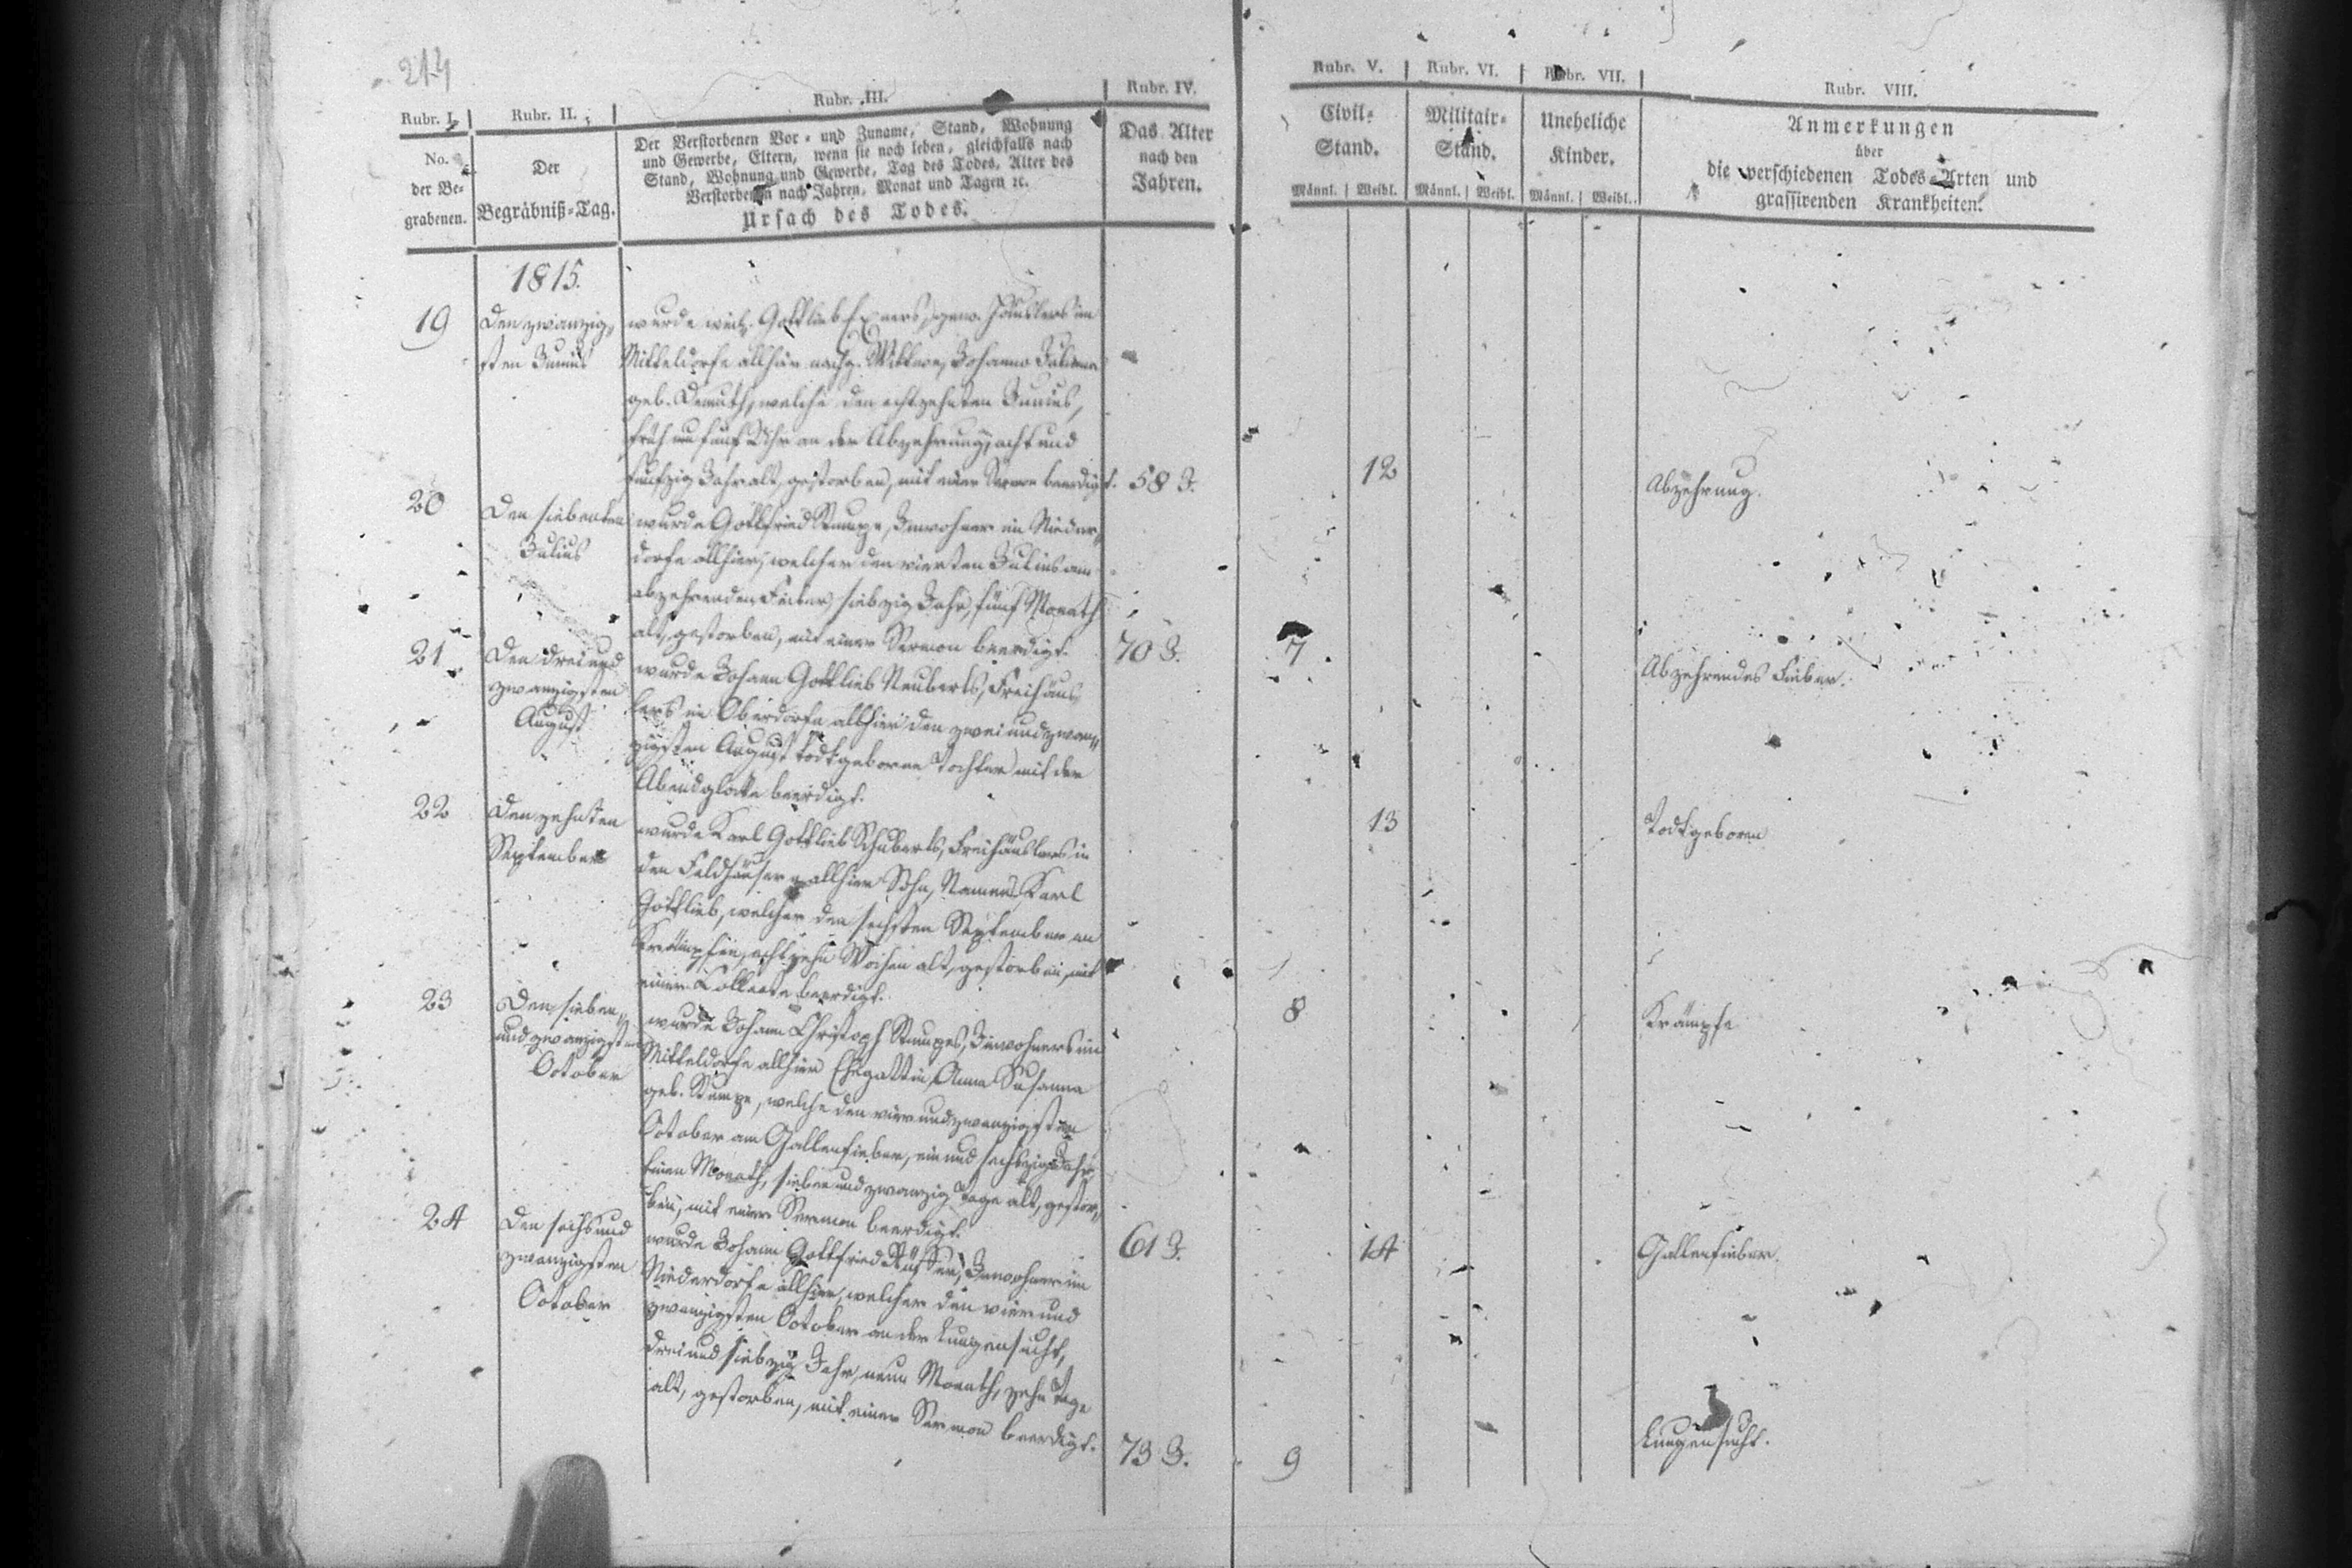 214
Rubr. I. Rubr. II. Rubr. III. Rubr. IV. Rubr. V. Rubr. VI. Rubr. VII. Rubr. VIII.
No.
der Be-
grabenen.
Der
Begräbniß-Tag.
Der Verstorbenen Vor- und Zuname, Stand, Wohnung
und Gewerbe, Eltern, wenn sie noch leben, gleichfalls nach
Stand, Wohnung und Gewerbe, Tag des Todes, Alter des
Verstorbenen nach Jahren, Monat und Tagen ꝛc.
Ursach des Todes.
Das Alter
nach den
Jahren.
Civil-
Stand.
Männl. Weibl.
Militair-
Stand.
Männl. Weibl.
Uneheliche
Kinder.
Männl. Weibl.
Anmerkungen
über
die verschiedenen Todes-Arten und
grassirenden Krankheiten.
1815.
19
Den zwanzig-
sten Junius
wurde weil. Gottlieb Exners, gew. Häuslers im
Mitteldorfe allhier nachg. Wittwe, Johanne Juliane
geb. Demuth, welche den achtzehnten Junius,
früh um fünf Uhr an der Abzehrung, acht und
funfzig Jahr alt, gestorben, mit einer Sermon beerdigt.
58 J.
12
Abzehrung.
20
Den siebenten
Julius
wurde Gottfried Stumpe, Inwohner im Nieder-
dorfe allhier, welcher den vierten Julius am
abzehrenden Fieber, siebzig Jahr, fünf Monath
alt, gestorben, mit einer Sermon beerdigt.
70 J.
7
Abzehrendes Fieber.
21
Den drei und
zwanzigsten
August
wurde Johann Gottlieb Neuberts, Freihäus-
lers im Oberdorfe allhier den zwei und zwan-
zigsten August todtgeborne Tochter mit der
Abendglocke beerdigt.
13
Todtgeboren
22
Den zehnten
September
wurde Karl Gottlieb Schuberts, Freihäuslers in
den Feldhäusern allhier Sohn, Namens Karl
Gottlieb, welcher den sechsten September an
Krämpfen, achtzehn Wochen alt, gestorben, mit
einer Collecte beerdigt.
8
Krämpfe
23
Den sieben-
und zwanzigsten
October
wurde Johann Christoph Stumpes, Inwohners im
Mitteldorfe allhier Ehegattin, Anna Susanna
geb. Stumpe, welche den vier und zwanzigsten
October am Gallenfieber, ein und sechszig Jahr,
einen Monath, sieben und zwanzig Tage alt, gestor-
ben, mit einer Sermon beerdigt.
61 J.
14
Gallenfieber.
24
Den sechs und
zwanzigsten
October
wurde Johann Gottfried Inwohner im
Niederdorfe allhier, welcher den vier und
zwanzigsten October an der Lungensucht,
drei und siebzig Jahr, neun Monath, zehn Tage
alt, gestorben, mit einer Sermon beerdigt.
73 J.
9
Lungensucht.